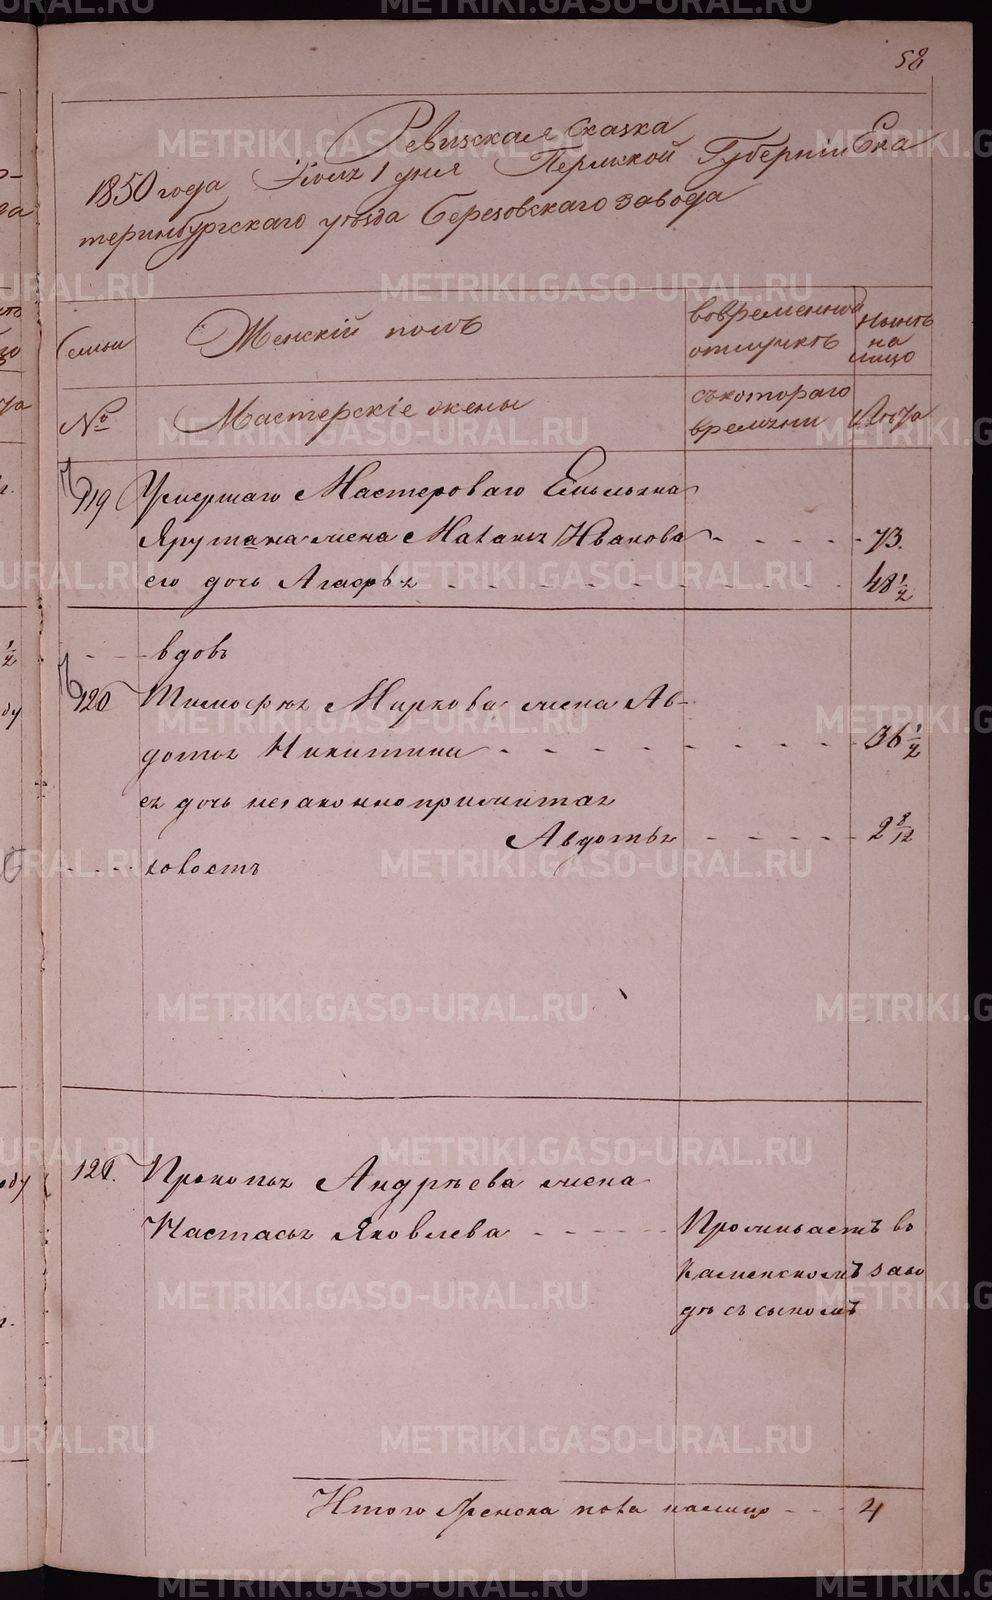 58
Ревизская сказка
1850 года Июля 1 дня Пермской Губерніи Ека
теринбургскаго уѣзда Березовскаго завода
Семьи
Женскій полъ
вовременной
отлучкѣ
Нынѣ
на
лицо
№
Мастерскіе жены
съкотораго
времени
Лѣта
119 Умершаго Мастероваго Емельяна
жена Маланья Иванова - - - - 73.
его дочь Агафья - - - - 48 1/2
вдовѣ
120 Тимофея Маркова жена Ав-
дотья Никитина - - - - 36 1/2
ея дочь незаконноприжитая
Авдотья - - - - 2 8/12
холостъ
121. Прокопья Андрѣева жена
Настасья Яковлева - - - - Проживаетъ въ
Каменскомъ заво
дѣ съ сыномъ
Итого Женска пола налицо - - - 4
METRIKI.GASO-URAL.RU